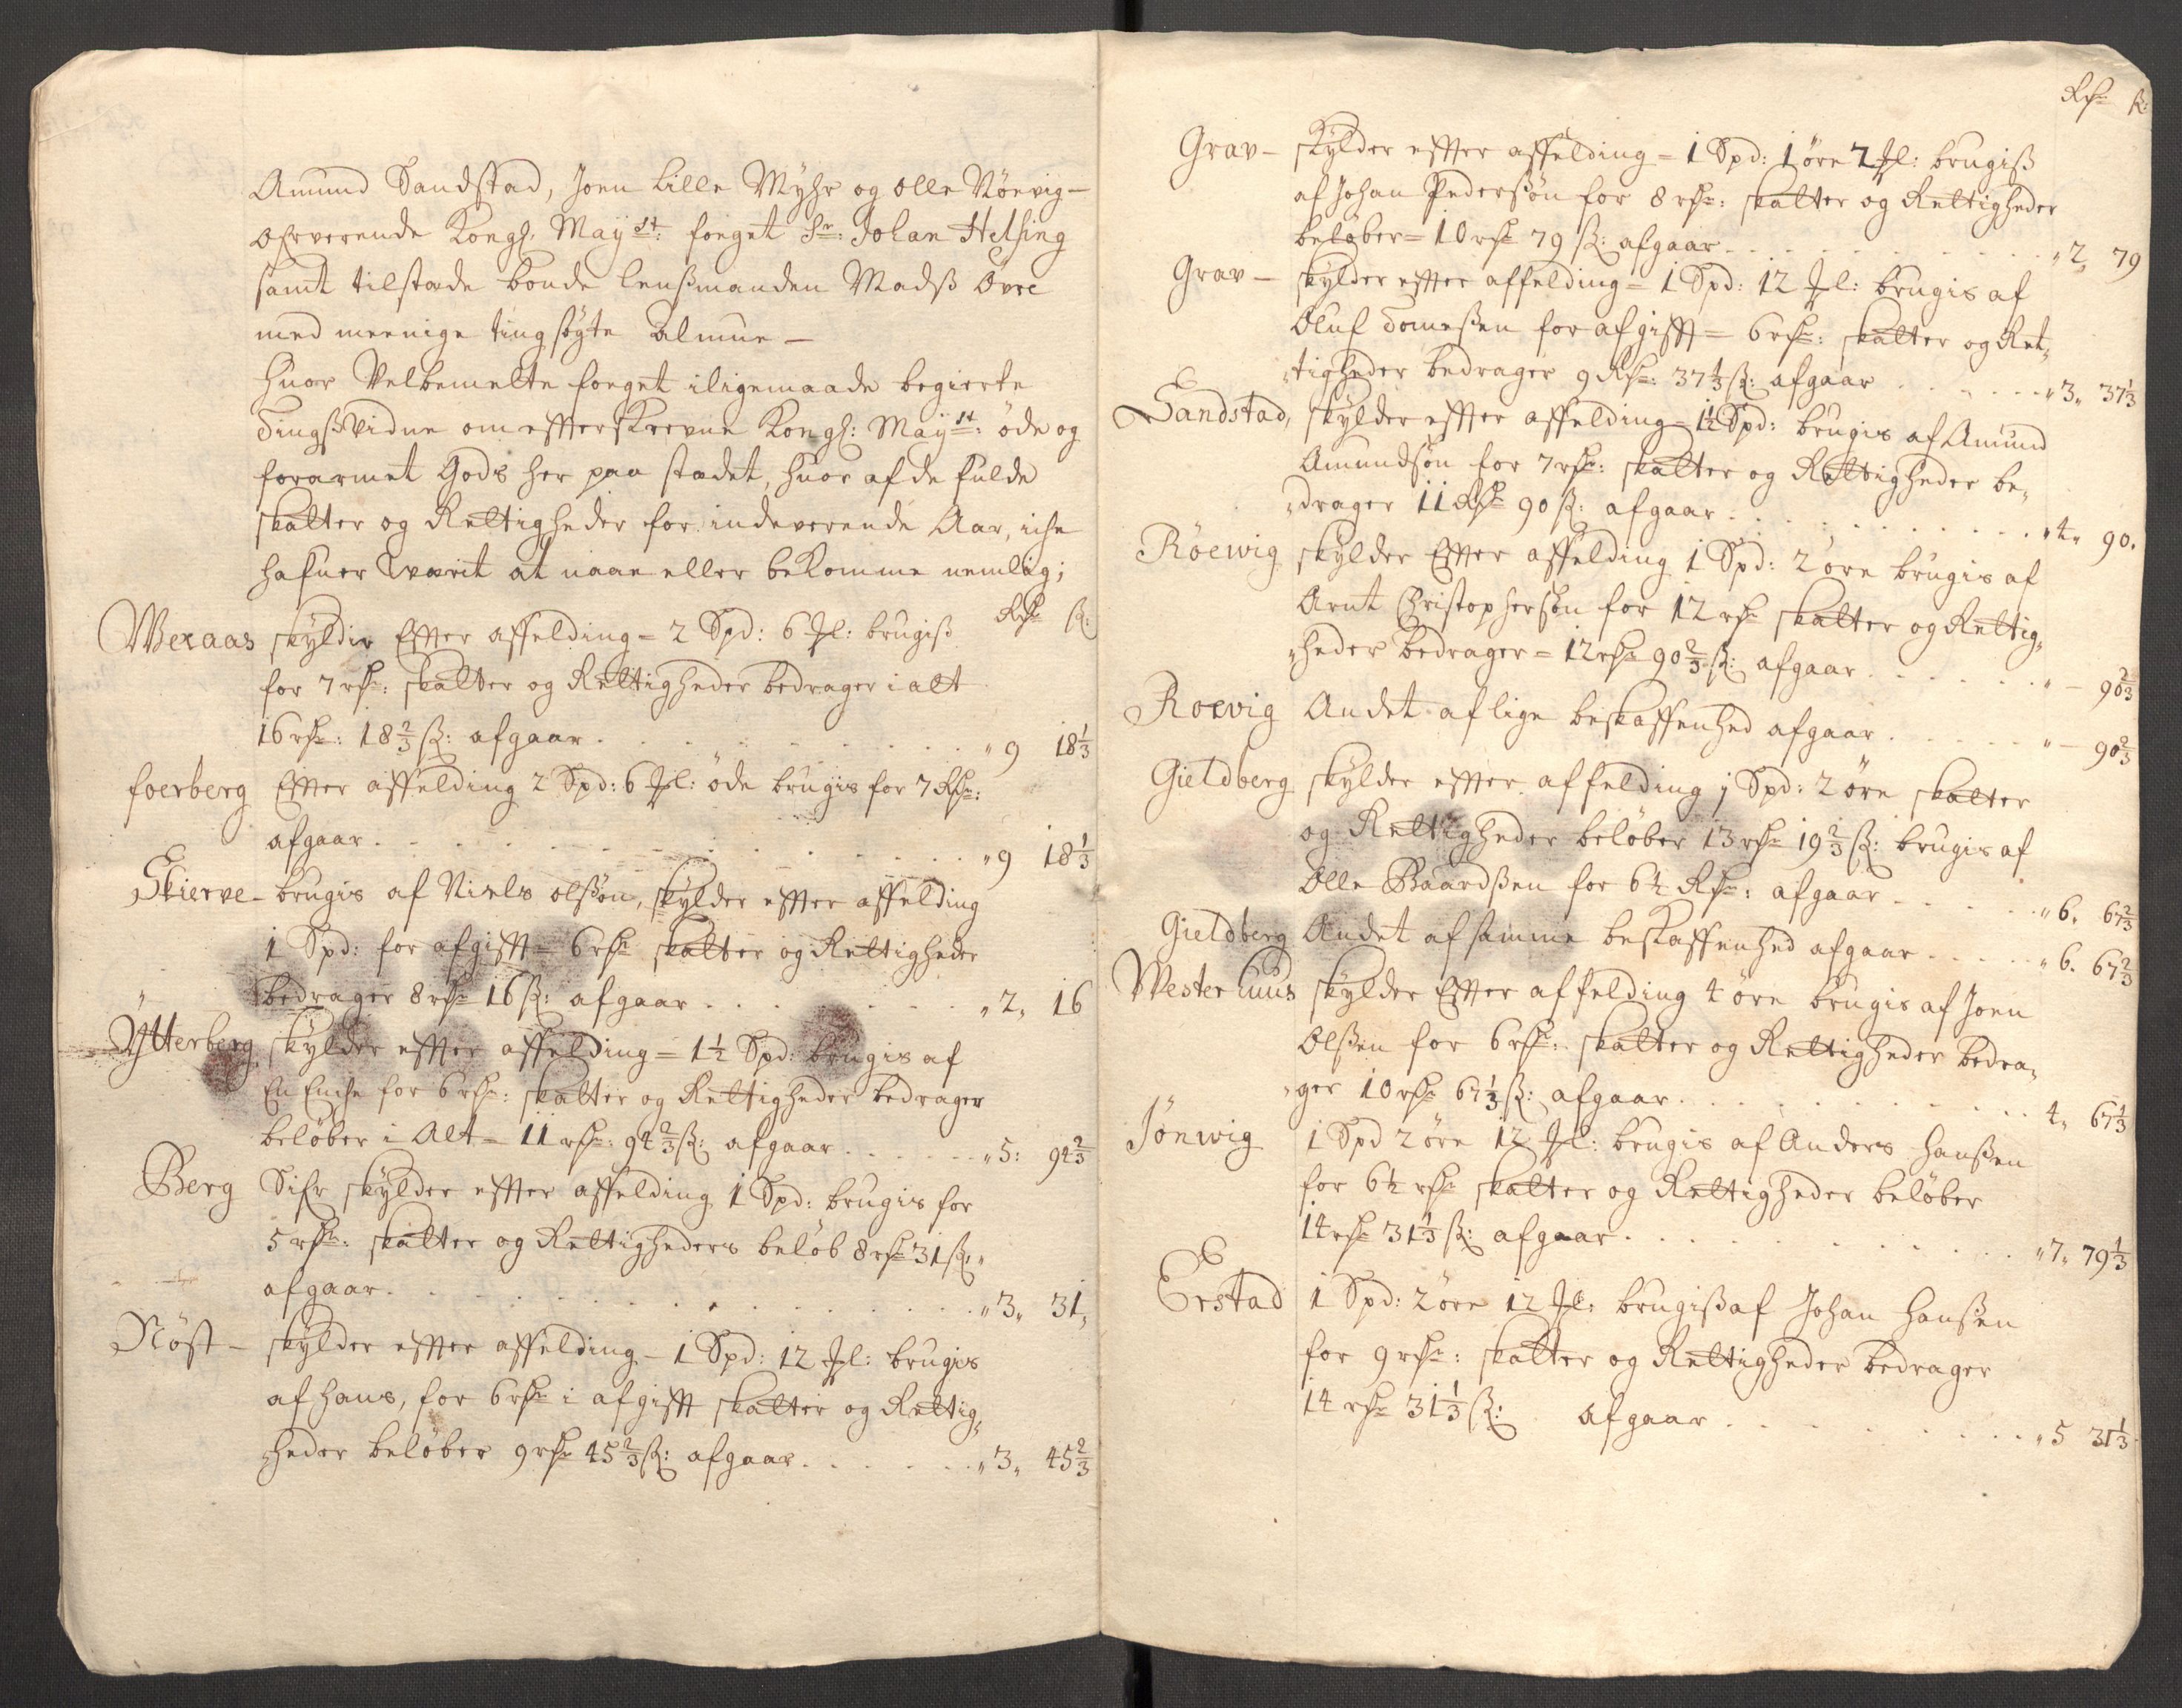 Amund Sandstad, Joen Lille Myhr og Olle Röevig-
ofrverende Kongl. May st: foeget Sr: Johan Helsing
samt tilstæde bonde lensmanden Madß Övre
med meenige tingsögte Almue -
Huor Velbemelte foeget iligemaade begierte
Tingßvidne om effterskrevne Kongl: May st: öde og
forarmet Gods her paa stædet, huor af de fulde
skatter og Rettigheder for indeverende Aar, iche
hafuer værit at naae eller bekomme nemlig;
Rdr ß:
Weraas skylder Effter affelding - 2 Spd: 6 Ml: brugiß
for 7 rdr: skatter og Rettigheder bedrager i alt
16 rdr: 18 2/3 ß: afgaar . . . . . . . " 9 18 1/3
foerberg Effter affelding 2 Spd: 6 Ml: öde brugis for 7 Rdr:
afgaar . . . . . . . . . " 9 18 1/3
Skierve- brugis af Niels olßön, skylder effter affelding
1 Spd: for afgifft = 6 rdr skatter og Rettigheder
bedrager 8 rdr 16 ß: afgaar . . . . . " 2, 16
Ytterberg skylder effter affelding = 1 1/2 Spd: brugis af
En Enche for 6 rdr: skatter og Rettigheder bedrager
beløber i Alt = 11 rdr: 94 2/3 ß: afgaar . . . . . " 5: 94 2/3
Berg skylder effter affelding 1 Spd: brugis for
5 rdr: skatter og Rettigheders beløb 8 rdr 31 ß:
afgaar . . . . . . . . . " 3, 31,
Nöst - skylder effter affelding - 1 Spd: 12 Ml: brugis
af Hans, for 6 rdr i afgifft skatter og Rettig,
,heder beløber 9 rdr 45 2/3 ß: afgaar . . . . . . " 3, 45 2/3
Rdr ß:
Grav - skylder effter affelding = 1 Spd: 1 öre 7 Ml: brugiß
af Johan Pederßön for 8 rdr: skatter og Rettigheder
beløber = 10 rdr 79 ß: afgaar . . . . . . . " 2, 79
Grav - skylder effter affelding = 1 Spd: 12 Ml: brugis af
Oluf Tomeßen for afgifft = 6 rdr: skatter og Ret,
,tigheder bedrager 9 Rdr: 37 1/3 ß: afgaar . . . . . " 3, 37 1/3
Sandstad, skylder effter affelding - 1 1/2 Spd: brugis af Amund
Amundsön for 7 rdr: skatter og Rettigheder be,
,drager 11 Rdr 90 ß: afgaar . . . . . . . . " 4, 90.
Röewig skylder Effter affelding 1 Spd: 2 öre brugis af
Arnt Christophersön for 12 rdr skatter og Rettig,
,heder bedrager = 12 rdr 90 2/3 ß: afgaar . . . . . . " - 90 2/3
Roevig Andet af lige beskaffenhed afgaar . . . . . " - 90 2/3
Gieldberg skylder effter affelding 1 Spd: 2 öre skatter
og Rettigheder beløber 13 rdr 19 2/3 ß: brugis af
Olle Baardßen for 6 1/2 Rdr: afgaar . . . . . " 6, 67 2/3
Gieldberg Andet af samme beskaffenhed afgaar . . . . . " 6. 67 2/3
Wester Huus skylder Effter affelding 4 öre brugis af Joen
Olßen for 6 rdr: skatter og Rettigheder bedra,
,ger 10 rdr 67 1/3 ß: afgaar . . . . . . . . 4, 67 1/3
Jönwig 1 Spd 2 öre 12 Ml: brugis af Anders Hanßen
for 6 1/2 rdr skatter og Rettigheder beløber
14 rdr 31 1/3 ß: afgaar . . . . . . . . . " 7, 79 1/3
Erstad 1 Spd: 2 öre 12 Ml: brugiß af Johan Hanßen
for 9 rdr: skatter og Rettigheder bedrager
14 rdr 31 1/3 ß: afgaar . . . . . . . . " 5 31 1/3